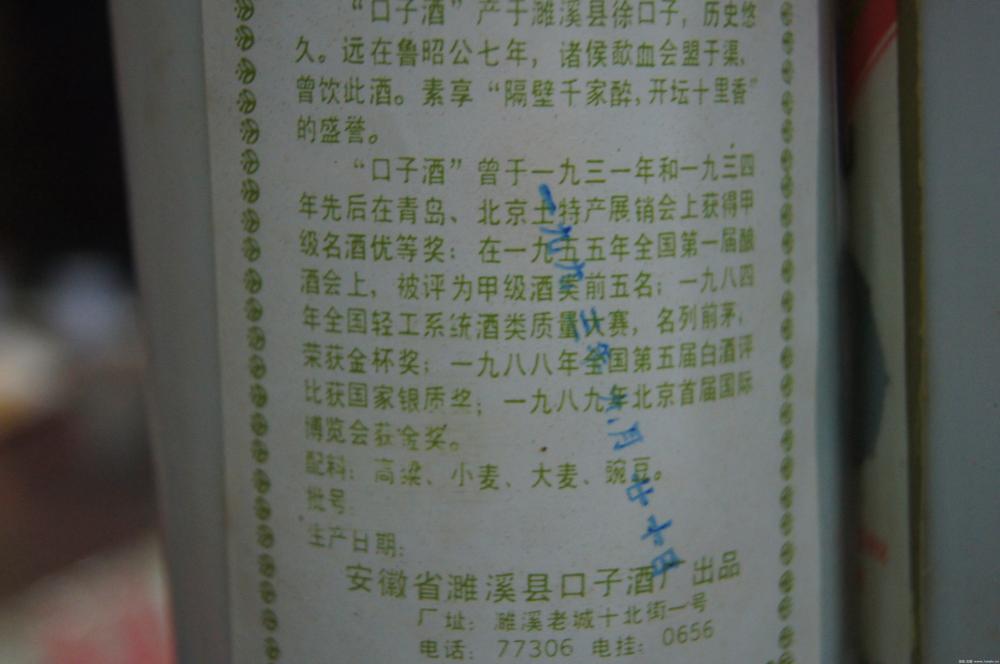 “口子酒”产于濉溪县徐口子，历史悠
久。远在鲁昭公七年，诸侯歃血会盟于渠，
曾饮此酒。素享“隔壁千家醉，开坛十里香”
的盛誉。
“口子酒”曾于一九三一年和一九三四
年先后在青岛、北京土特产展销会上获得甲
级名酒优等奖；在一九五五年全国第一届酿
酒会上，被评为甲级酒类前五名；一九八四
年全国轻工系统酒类质量大赛，名列前茅，
荣获金杯奖；一九八八年全国第五届白酒评
比获国家银质奖；一九八九年北京首届国际
博览会获金奖。
配料：高粱、小麦、大麦、豌豆。
批号：
生产日期：
安徽省濉溪县口子酒厂出品
厂址：濉溪老城十北街一号
电话：77306 电挂：0656
一九九三年八月廿十日